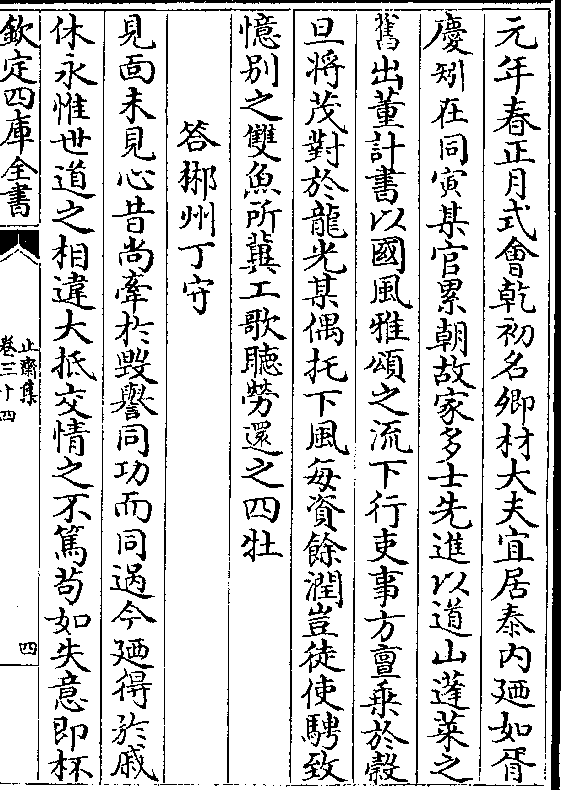 元年春正月式會乾初名卿材大夫宜居泰内廼如胥
慶矧在同寅某官累朝故家多士先進以道山蓬萊之
舊出董計書以國風雅頌之流下行吏事方亶乗於穀
旦将茂對於龍光某偶托下風每資餘潤豈徒使騁致
憶别之雙魚所冀工歌聽勞還之四牡
答郴州丁守
見面未見心昔尚牽於毁譽同功而同過今廼得於戚
休永惟世道之相違大抵交情之不篤苟如失意即杯
欽定四庫全書
止齋集
卷三十四
四